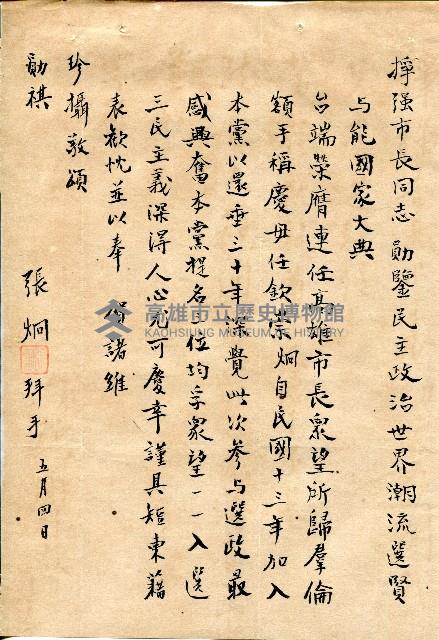 擇强市長同志勛鑒民主政治世界潮流選賢
与能國家大典
台端榮膺連任高雄市長衆望所歸羣倫
額手稱慶毋任欽崇炯自民國十三年加入
本黨以還垂三十年深覺此次參与選政最
感興奮本黨提名各位均孚衆望一一入選
三民主義深得人心尤可慶幸謹具短柬藉
表歡忱並以奉賀諸維
珍攝敬頌
勛祺
張炯
拜手 五月四日
高雄市立歷史博物館
KAOHSIUNG MUSEUM OF HISTORY